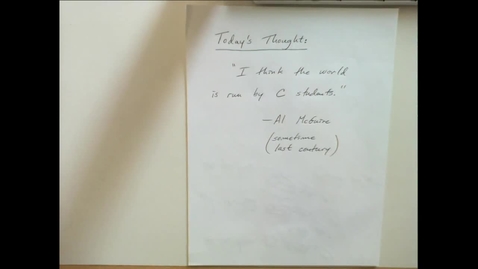 Today's Thoughts
"I think the world
is run by C students."
— Al McGuire
(sometime
last century)